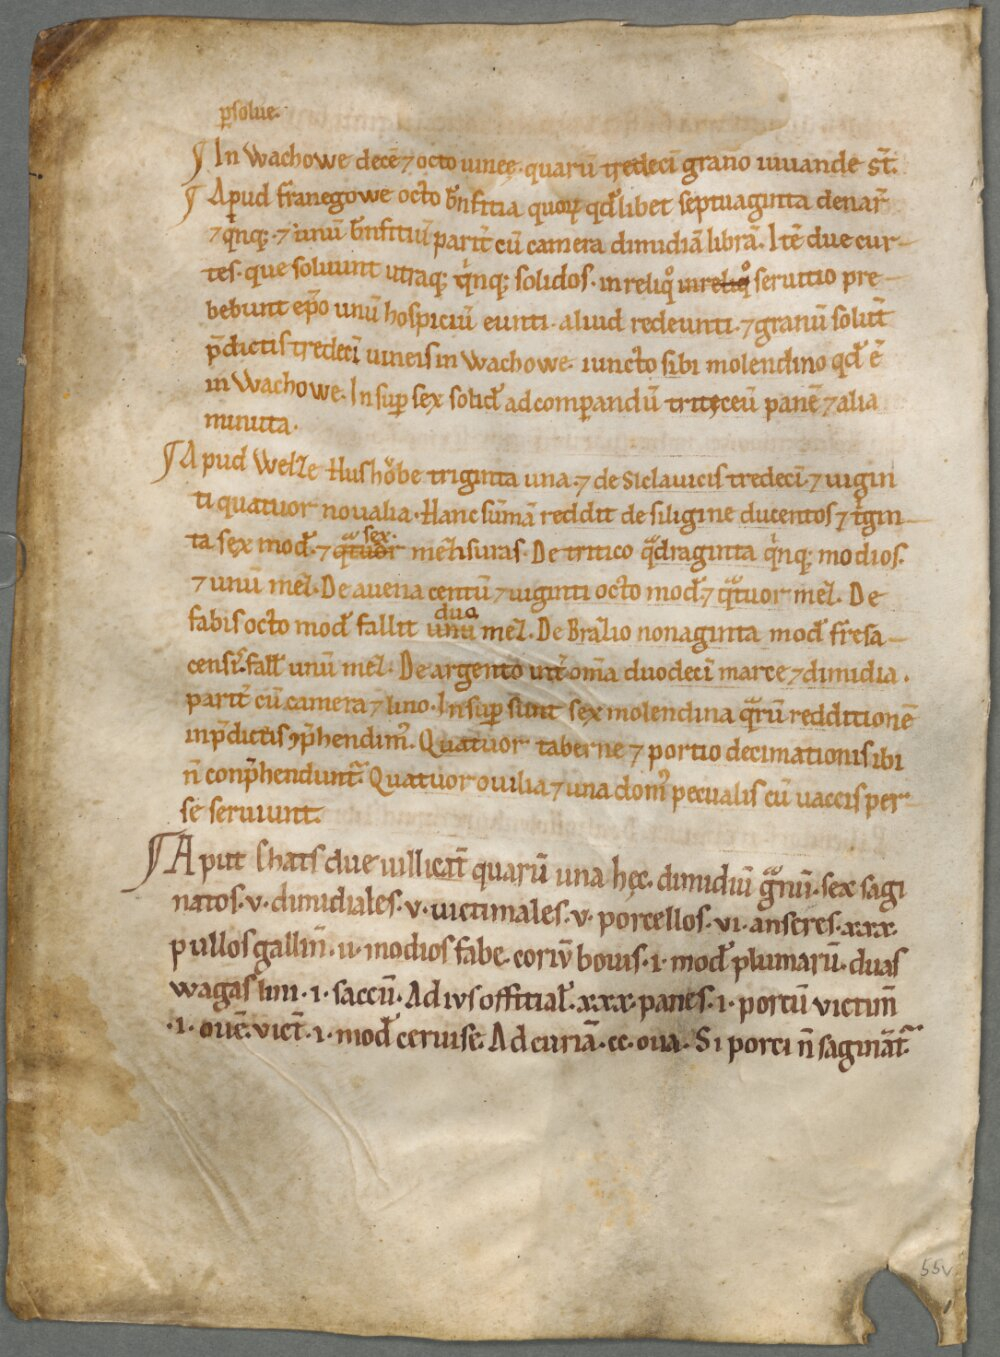 p̱solue.
¶ In Wachowe decē ⁊ octo uineę. quarū tredecī granō uiuande st̄.
¶ Apud franegowe octo b̄nfitia quoꝝ qd̓libet septuaginta denar̄
⁊ qͥnq; ⁊ unū b̄nfitiū parit̄ cū camera dimidiā librā. Itē due cur-
tes. que soluunt utraq; qͥnq; solidos. in reliqͦ inreliqͦ seruitio pre-
bebunt ep̄o unū hospiciū eunti. aliud redeunti. ⁊ granū solut̄
p̄dictis tredecī uineis in Wachowe. iuncto sibi molendino qd̓ ē
in Wachowe. Insuꝑ sex solid̓ adcomparandū triteceū panē ⁊ alia
minuta.
¶ Apud Welze Hushoͤbe triginta una. ⁊ de Sclauicis tredecī. ⁊ uigin
ti quatuor noualia. Hanc sūmā reddit de siligine ducentos ⁊ tͥgin-
ta sex mod̓. ⁊ qᷓtuor sex. mensuras. De tritico qᷓdraginta qͥnq; modios.
⁊ unū mēs. De auena centū ⁊ uiginti octo mod̓ ⁊ qᷓtuor mēs. De
fabis octo mod̓ fallit unū dua mēs. De Brasio nonaginta mod̓ fr̄esa-
censiͬ. fall̓ unū mēs. De argento int̄ om̄a duodecī marce ⁊ dimidia.
parit̄ cū camera ⁊ lino. Insuꝑ sunt sex molendina qᷓrū redditionē
inp̄dictis ꝯp̄hendimꝰ. Quatuor taberne ⁊ portio decimationis ibi
n̄ conp̄hendunt̄. Quatuor ouilia ⁊ una domꝰ pecualis cū uaccis per-
se seruiunt.
¶ Aput Chats due uillicat̄ quarū una hęc. dimidiū gᷓnū. sex sagi
natos. v. dimidiales. v. uictimales. v. porcellos. vi. anseres. xxx.
pullos gallin̄. ii. modios fabe. coriv̄ bouis. i. mod̓ plumarū. duas
wagas lini. i. saccū. Ad ivs offitial̓. xxx. panes. i. porcū victim̄
.i. ouē. vict̄. i. mod̓ ceruise. Ad curiā. cc. oua. Si porci n̄ saginat̄.
55v